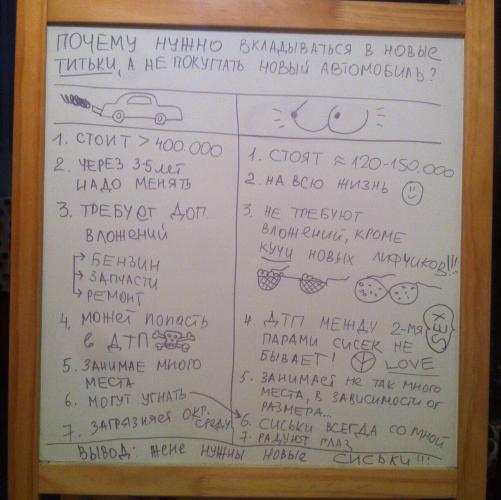 ПОЧЕМУ НУЖНО ВКЛАДЫВАТЬСЯ В НОВЫЕ
ТИТЬКИ, А НЕ ПОКУПАТЬ НОВЫЙ АВТОМОБИЛЬ?
1. СТОИТ > 400.000
2. ЧЕРЕЗ 3-5 лет
НАДО МЕНЯТЬ
3. ТРЕБУЕТ ДОП.
ВЛОЖЕНИЙ
БЕНЗИН
ЗАПЧАСТИ
РЕМОНТ
4. МОЖЕТ ПОПАСТЬ
в ДТП
5. ЗАНИМАЕ МНОГО
МЕСТА
6. МОГУТ УГНАТЬ
7. ЗАГРЯЗНЯЕТ ОКР.
СРЕДУ
1. СТОЯТ ≈ 120-150.000
2. НА ВСЮ ЖИЗНЬ
3. НЕ ТРЕБУЮТ
ВЛОЖЕНИЙ, КРОМЕ
КУЧИ НОВЫХ ЛИФЧИКОВ!!!
4. ДТП МЕЖДУ 2-МЯ
ПАРАМИ СИСЕК НЕ
БЫВАЕТ! LOVE
SEX
5. ЗАНИМАЕТ НЕ ТАК МНОГО
МЕСТА, В ЗАВИСИМОСТИ ОТ
РАЗМЕРА...
6. СИСЬКИ ВСЕГДА СО МНОЙ
7. РАДУЮТ ГЛАЗ
ВЫВОД: жене НУЖНЫ НОВЫЕ СИСЬКИ!!!